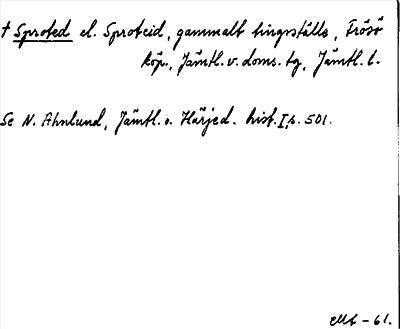 † Sproted el. Sproteid, gammalt tingsställe, Frösö
köp., Jämtl. v. doms. tg, Jämtl. l.
Se N. Ahnlund, Jämtl. o. Härjed. hist. I, s. 501.
-61.